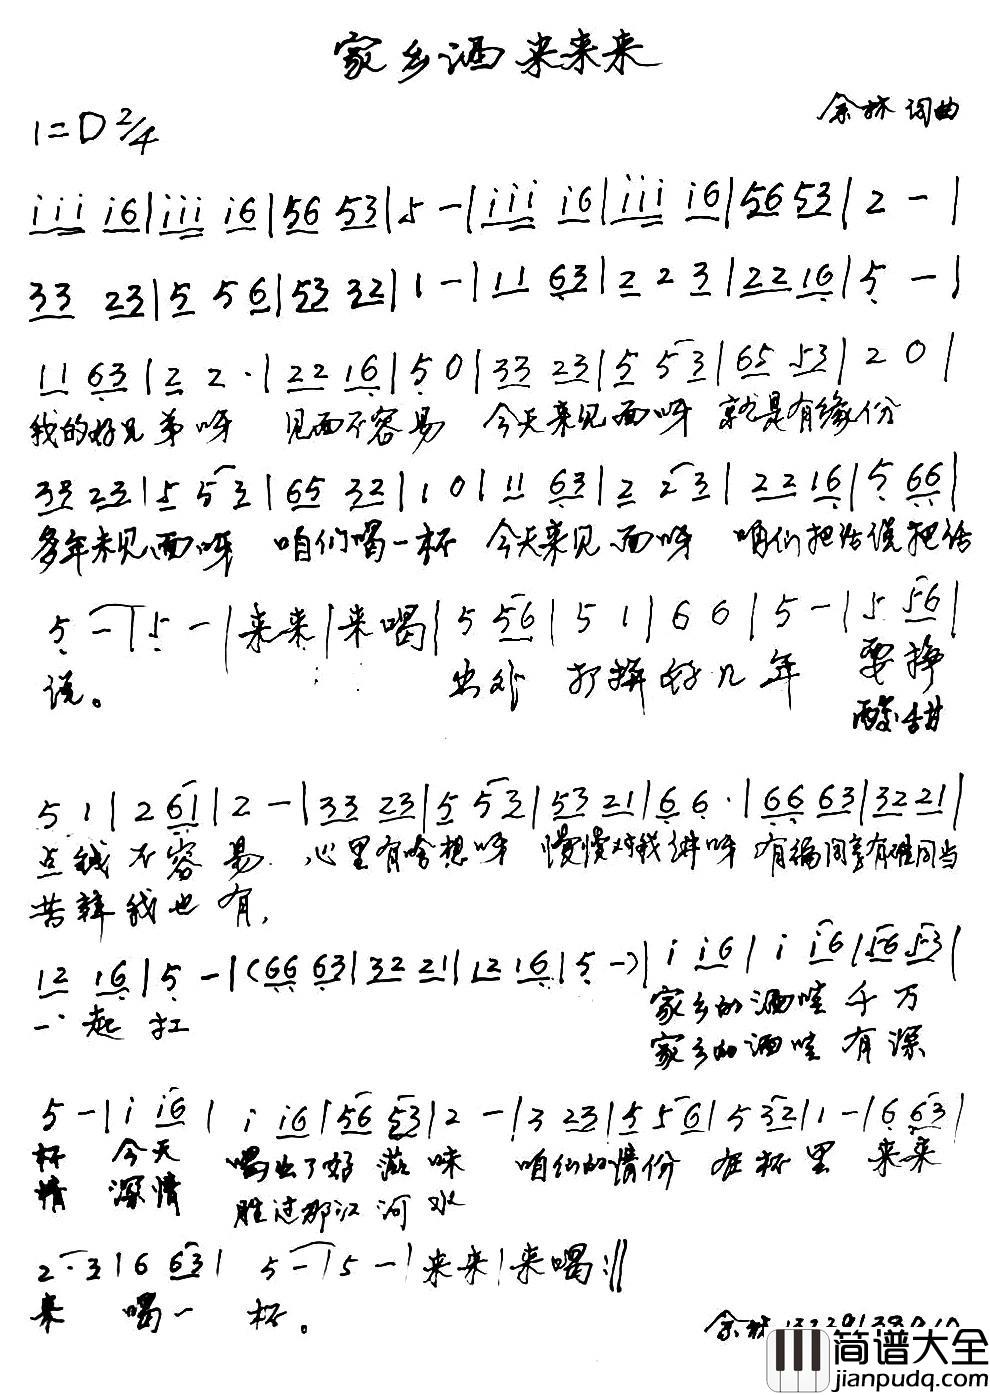 家乡酒来来来
余林词曲
1=D 2/4
i i i i 6 | i i i i 6 | 5 6 5 3 | 5 - | i i i i 6 | i i i i 6 | 5 6 5 3 | 2 - |
3 3 2 3 | 5 5 6 | 5 3 3 2 | 1 - | 1 1 6 3 | 2 2 3 | 2 2 1 6 | 5 - |
1 1 6 3 | 2 2 · | 2 2 1 6 | 5 0 | 3 3 2 3 | 5 5 3 | 6 5 5 3 | 2 0 |
我的好兄弟呀 见面不容易 今天来见面呀 就是有缘份
3 3 2 3 | 5 5 3 | 6 5 3 2 | 1 0 | 1 1 6 3 | 2 2 3 | 2 2 1 6 | 5 6 6 |
多年未见面呀 咱们喝一杯 今天来见面呀 咱们把话说把话
5 - | 5 - | 来来 | 来喝 | 5 5 6 | 5 1 | 6 6 | 5 - | 5 5 6 |
说。 出外 打拼好几年 要挣
酸甜
5 1 | 2 6 1 | 2 - | 3 3 2 3 | 5 5 3 | 5 3 2 1 | 6 6 · | 6 6 6 3 | 3 2 2 1 |
点钱不容易 心里有啥想呀 慢慢对我讲呀 有福同享有难同当
苦辣我也有,
1 2 1 6 | 5 - | (6 6 6 3 | 3 2 2 1 | 1 2 1 6 | 5 -) | i i 6 | i i 6 | 5 6 5 3 |
一起扛 家乡的酒哇千万
家乡的酒哇有深
5 - | i i 6 | i i 6 | 5 6 5 3 | 2 - | 3 2 3 | 5 5 6 | 5 3 2 | 1 - | 6 6 3 |
杯 今天 喝出了好滋味 咱们的情份在杯里 来来
情 深情 胜过那江河水
2 · 3 | 6 6 3 | 5 - | 5 - | 来来 | 来喝 :||
来 喝一 杯。
余林
简谱大全
jianpudq.com